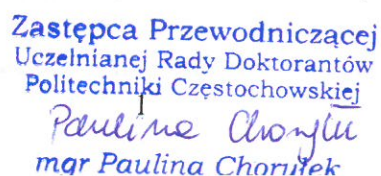 Zastępca Przewodniczącej
Uczelnianej Rady Doktorantów
Politechniki Częstochowskiej
Paulina Choryłek
mgr Paulina Choryłek